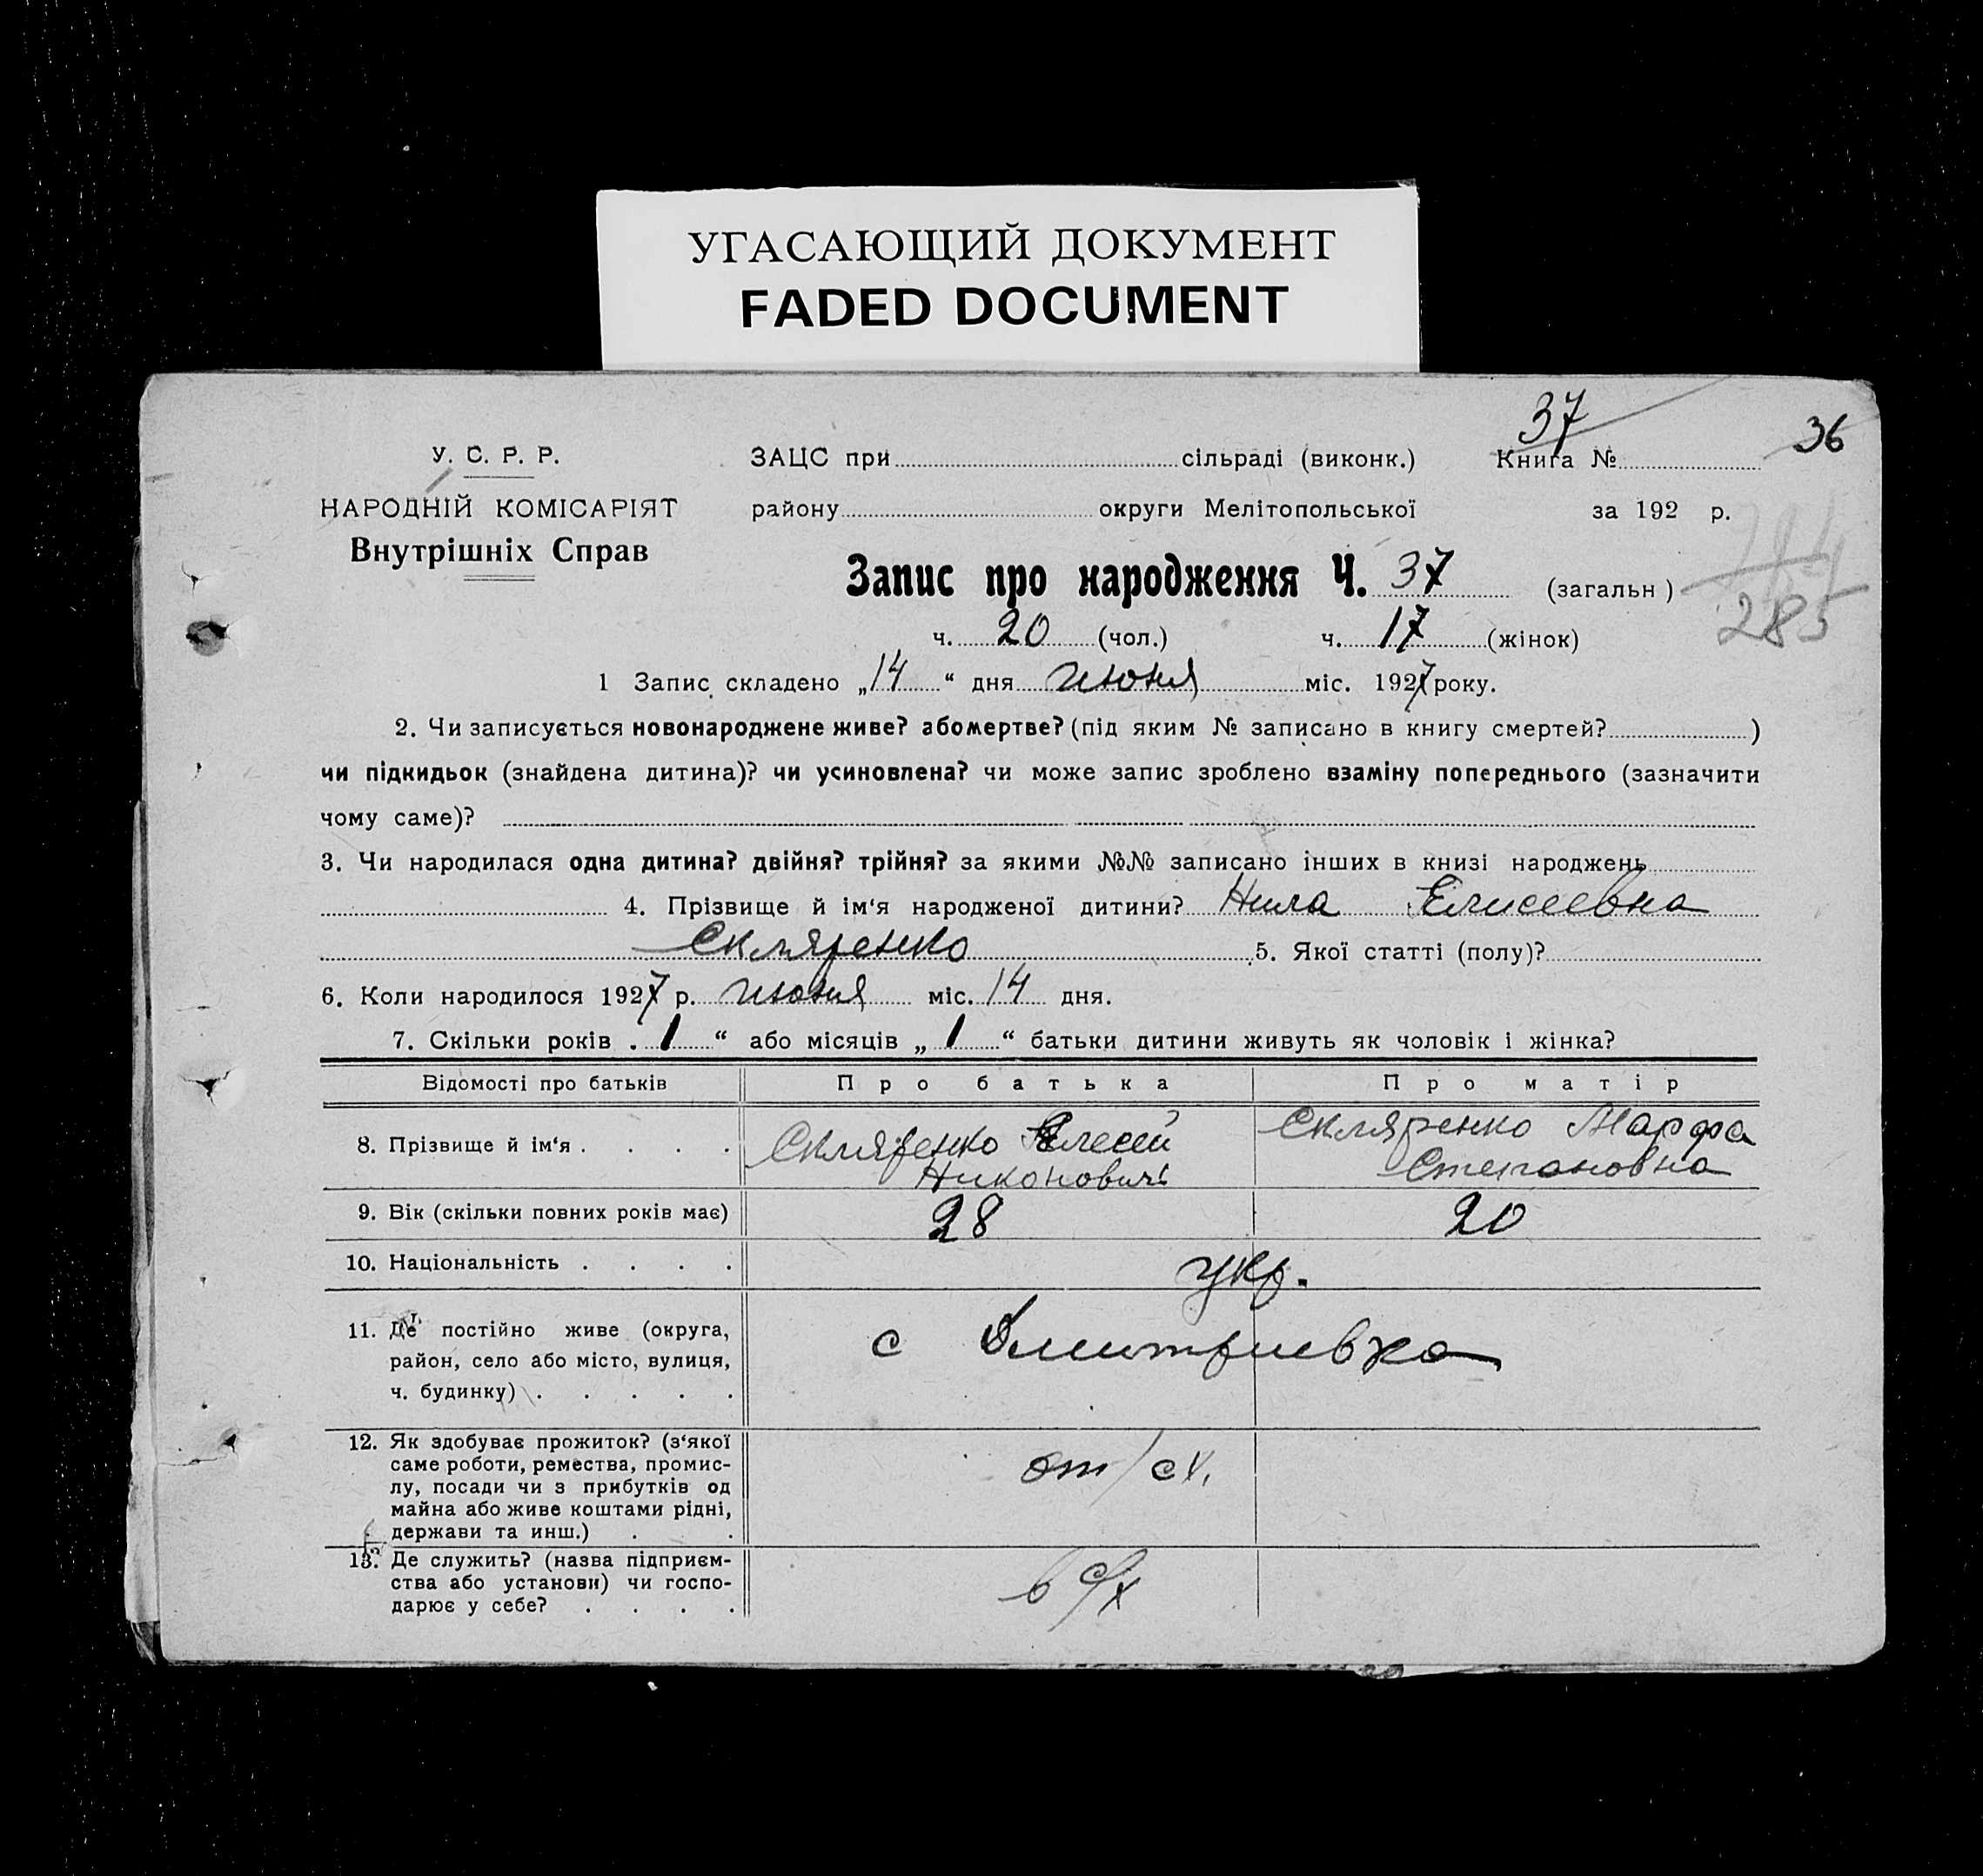 УГАСАЮЩИЙ ДОКУМЕНТ
FADED DOCUMENT
37
36
У. С. Р. Р.
ЗАЦС при сільраді (виконк.) Книга №
НАРОДНІЙ КОМІСАРІЯТ
району округи Мелітопольської за 192 р.
Внутрішніх Справ
Запис про народження Ч. 37 (загальн)
285
ч. 20 (чол.) ч. 17 (жінок)
1 Запис складено „14“ дня июня міс. 1927 року.
2. Чи записується новонароджене живе? або мертве? (під яким № записано в книгу смертей? )
чи підкидьок (знайдена дитина)? чи усиновлена? чи може запис зроблено взаміну попереднього (зазначити
чому саме)?
3. Чи народилася одна дитина? двійня? трійня? за якими №№ записано інших в книзі народжень
4. Прізвище й ім‘я народженої дитини? Нила Елисеевна
Скляренко 5. Якої статті (полу)?
6. Коли народилося 1927 р. июня міс. 14 дня.
7. Скільки років . 1 “ або місяців „ 1 “ батьки дитини живуть як чоловік і жінка?
Відомості про батьків Про батька Про матір
8. Прізвище й ім‘я . . . . Скляренко Елесей Скляренко Марфа
Никонович Степановна
9. Вік (скільки повних років має) 28 20
10. Національність . . . . укр.
11. Де постійно живе (округа,
район, село або місто, вулиця,
ч. будинку) . . . . .
с Дмитриевка
12. Як здобуває прожиток? (з‘якої
саме роботи, ремества, промис-
лу, посади чи з прибутків од
майна або живе коштами рідні,
держави та инш.) . .
от/сх.
13. Де служить? (назва підприєм-
ства або установи) чи госпо-
дарює у себе? . . . .
в с/х